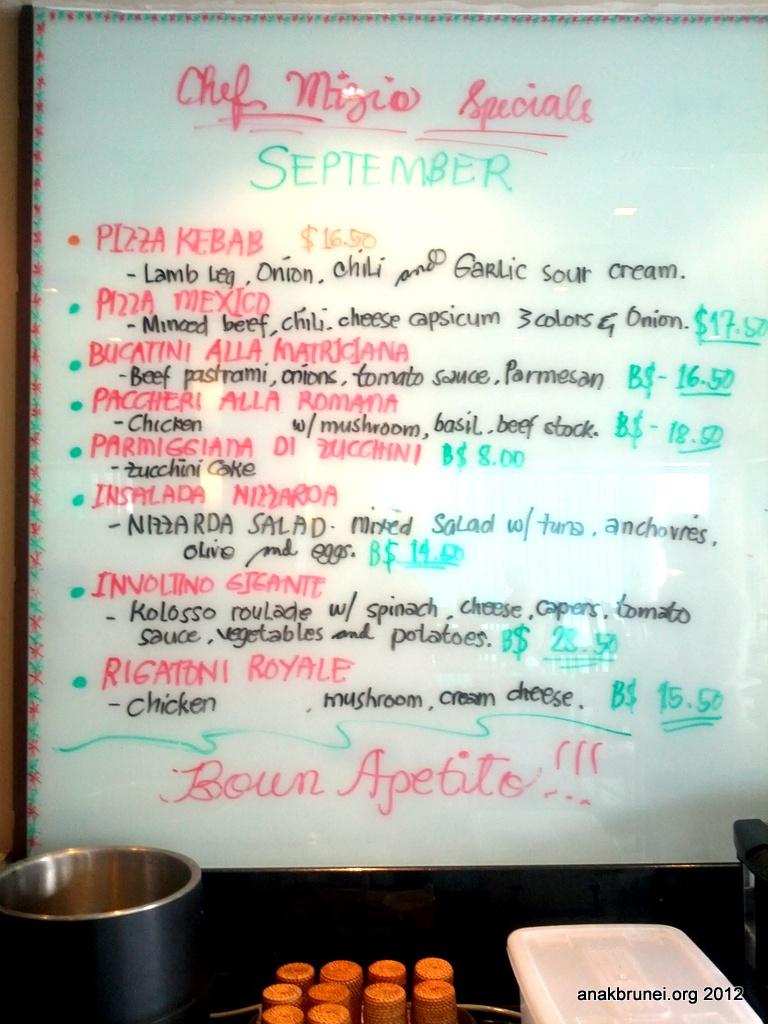 Chef Mizio Specials
SEPTEMBER
• PIZZA KEBAB $16.50
- Lamb Leg, Onion, Chili and Garlic sour cream.
• PIZZA MEXICO
- Minced beef, chili, cheese capsicum 3 colors & Onion. $17.50
• BUCATINI ALLA MATRICIANA
- Beef pastrami, onions, tomato sauce, Parmesan B$- 16.50
• PACCHERI ALLA ROMANA
- Chicken w/ mushroom, basil, beef stock. B$- 18.50
• PARMIGGIANA DI ZUCCHINI B$ 8.00
- Zucchini Cake
• INSALADA NIZZARDA
- NIZZARDA SALAD. mixed Salad w/ tuna, anchovies,
olive and eggs. B$ 14.50
• INVOLTINO GIGANTE
- Kolosso roulade w/ spinach, cheese, capers, tomato
sauce, vegetables and potatoes. B$ 28.50
• RIGATONI ROYALE
- Chicken , mushroom, cream cheese. B$ 15.50
Boun Apetito!!!
anakbrunei.org 2012